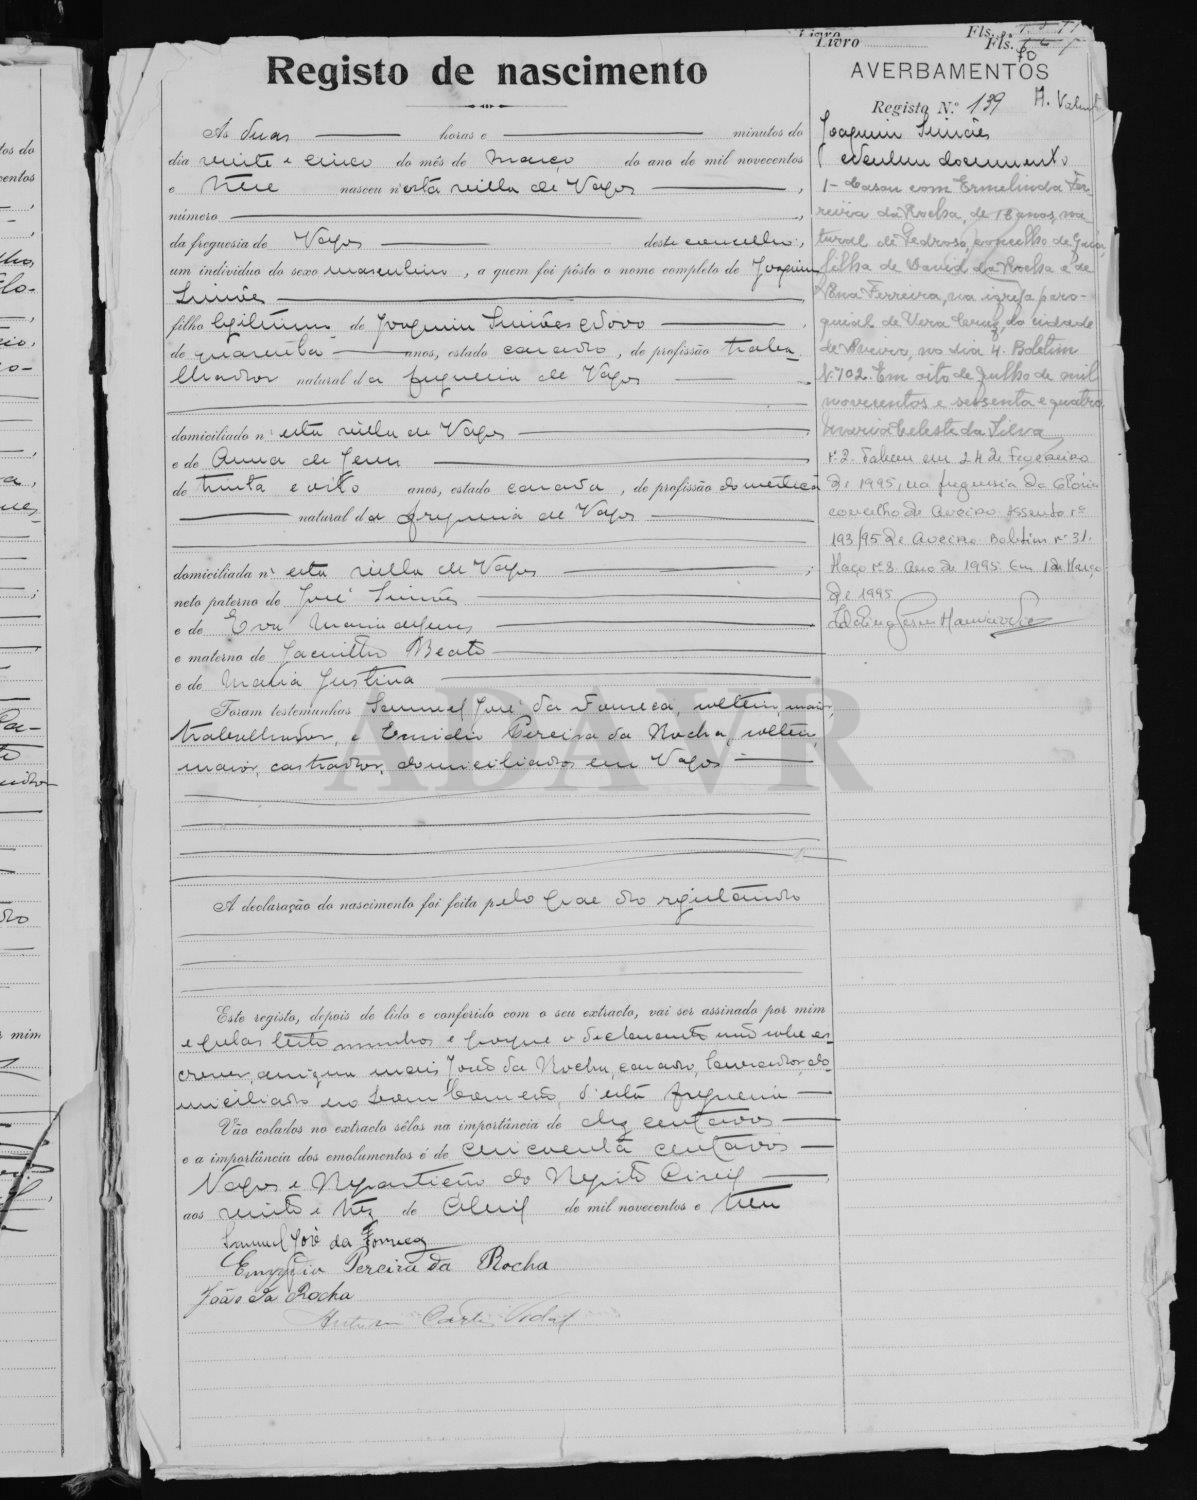 Livro
Livro
Fls.
Fls. 70
Registo de nascimento
Às duas horas e minutos do
dia vinte e cinco do mês de Março do ano de mil novecentos
e treze nasceu n'esta villa de Vagos,
número
da freguesia de Vagos deste concelho,
um individuo do sexo masculino, a quem foi pôsto o nome completo de Joaquim
Simões
filho legitimo de Joaquim Simões Novo
de quarenta anos, estado casado, de profissão traba-
lhador natural da freguesia de Vagos
domiciliado n'esta villa de Vagos
e de Anna de Jesus
de trinta e oito anos, estado casada, de profissão domestica
natural da freguesia de Vagos
domiciliada n'esta villa de Vagos;
neto paterno de José Simões
e de Eva Maria de Jesus
e materno de Jacintho Beato
e de Maria Justina
Foram testemunhas Samuel José da Fonseca, solteiro, maior,
trabalhador, e Emidio Pereira da Rocha, solteiro,
maior, castrador, domiciliados em Vagos
ADAVR
A declaração do nascimento foi feita pelo pae do registando
Este registo, depois de lido e conferido com o seu extracto, vai ser assinado por mim
e pelas testemunhas e porque o declarante não sabe es-
crever, assigna mais João da Rocha, casado, lavrador, do-
miciliado no d'esta freguesia
Vão colados no extracto sêlos na importância de dez centavos
e a importância dos emolumentos é de cincoenta centavos
Vagos e Repartição do Registo Civil
aos vinte e trez de Abril de mil novecentos e treze
Samuel José da Fonseca
Emygdio Pereira da Rocha
João da Rocha
Carlos Vidal
AVERBAMENTOS
Registo N.º 139
Joaquim Simões
Nenhum documento
1- Casou com Ermelinda Fer-
reira da Rocha, de 18 anos, na-
tural de Pedroso, concelho de Gaia,
filha de David da Rocha e de
Ana Ferreira, na igreja paro-
quial de Vera Cruz, da cidade
de Aveiro, no dia 4. Boletim
N. 702. Em oito de Julho de mil
novecentos e sessenta e quatro.
Maria Celeste da Silva
nº 2. Faleceu em 24 de Fevereiro
de 1995, na freguesia da Glória
concelho de Aveiro. Assento nº
193/95 de Aveiro. Boletim nº 31.
Maço nº 8. Ano de 1995. Em 1 de Março
de 1995